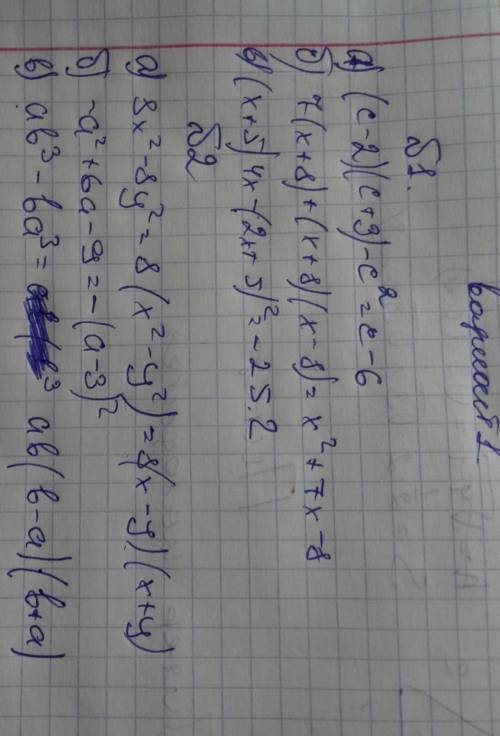 вариант 1.
б1.
а) (c-2)(c+9)-c²=c-6
б) 7(x+8)+(x+8)(x-8)=x²+7x-8
в) (x+5)4x-(2x+5)²=-25.2
б2
а) 8x²-8y²=8(x²-y²)=8(x-y)(x+y)
б) -a²+6a-9=-(a-3)²
в) ab³-ba³= ab(b-a)(b+a)